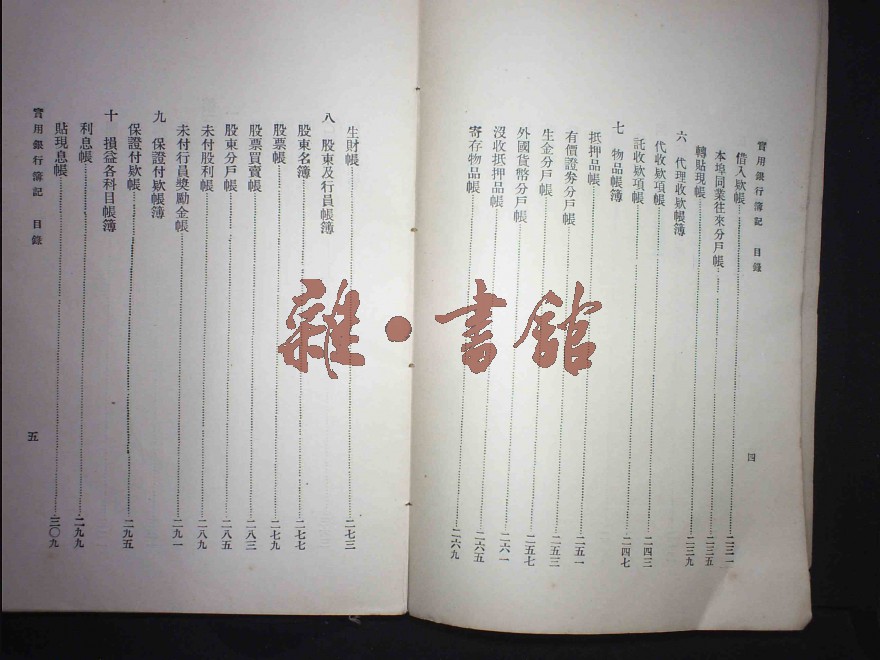 實用銀行簿記 目錄
借入欵帳……二三一
本埠同業往來分戶帳……二三五
轉貼現帳……二三九
六 代理收欵帳簿
代收欵項帳……二四三
託收欵項帳……二四七
七 物品帳簿
抵押品帳……二五一
有價證券分戶帳……二五三
生金分戶帳……二五七
外國貨幣分戶帳……二六一
沒收抵押品帳……二六五
寄存物品帳……二六九
四
生財帳……二七三
八 股東及行員帳簿
股東名簿……二七七
股票帳……二七九
股票買賣帳……二八三
股東分戶帳……二八五
未付股利帳……二八九
未付行員獎勵金帳……二九一
九 保證付欵帳簿
保證付欵帳……二九五
十 損益各科目帳簿
利息帳……二九九
貼現息帳……三〇九
實用銀行簿記 目錄
五
雜·書館